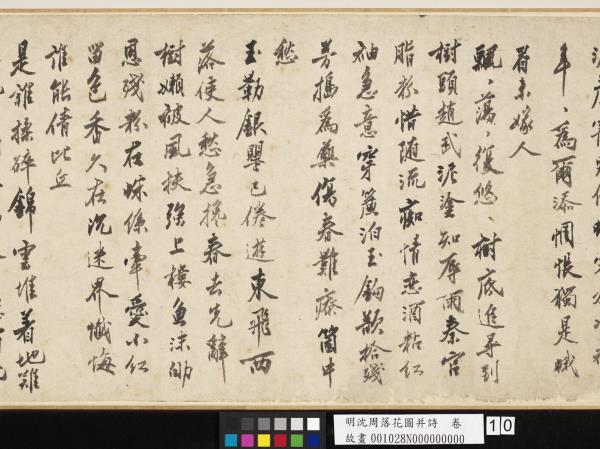 年〻為爾添惆悵獨是蛾
眉未嫁人
飄〻蕩〻復悠〻樹底追尋到
樹頭趙武泥塗知辱雨秦宮
脂粉惜隨流痴情戀酒粘紅
袖急意穿簾泊玉鉤欲拾殘
芳搗為藥傷春難療箇中
愁
玉勒銀罌已倦遊東飛西
落使人愁急攙春去先辭
樹嬾被風扶強上樓魚沫劬
恩殘粉在蛛絲牽愛小紅
留色香久在沉迷界懺悔
誰能倩比丘
是誰揉碎錦雲堆着地難
明沈周落花圖并詩 卷
故畫 001028N000000000
10